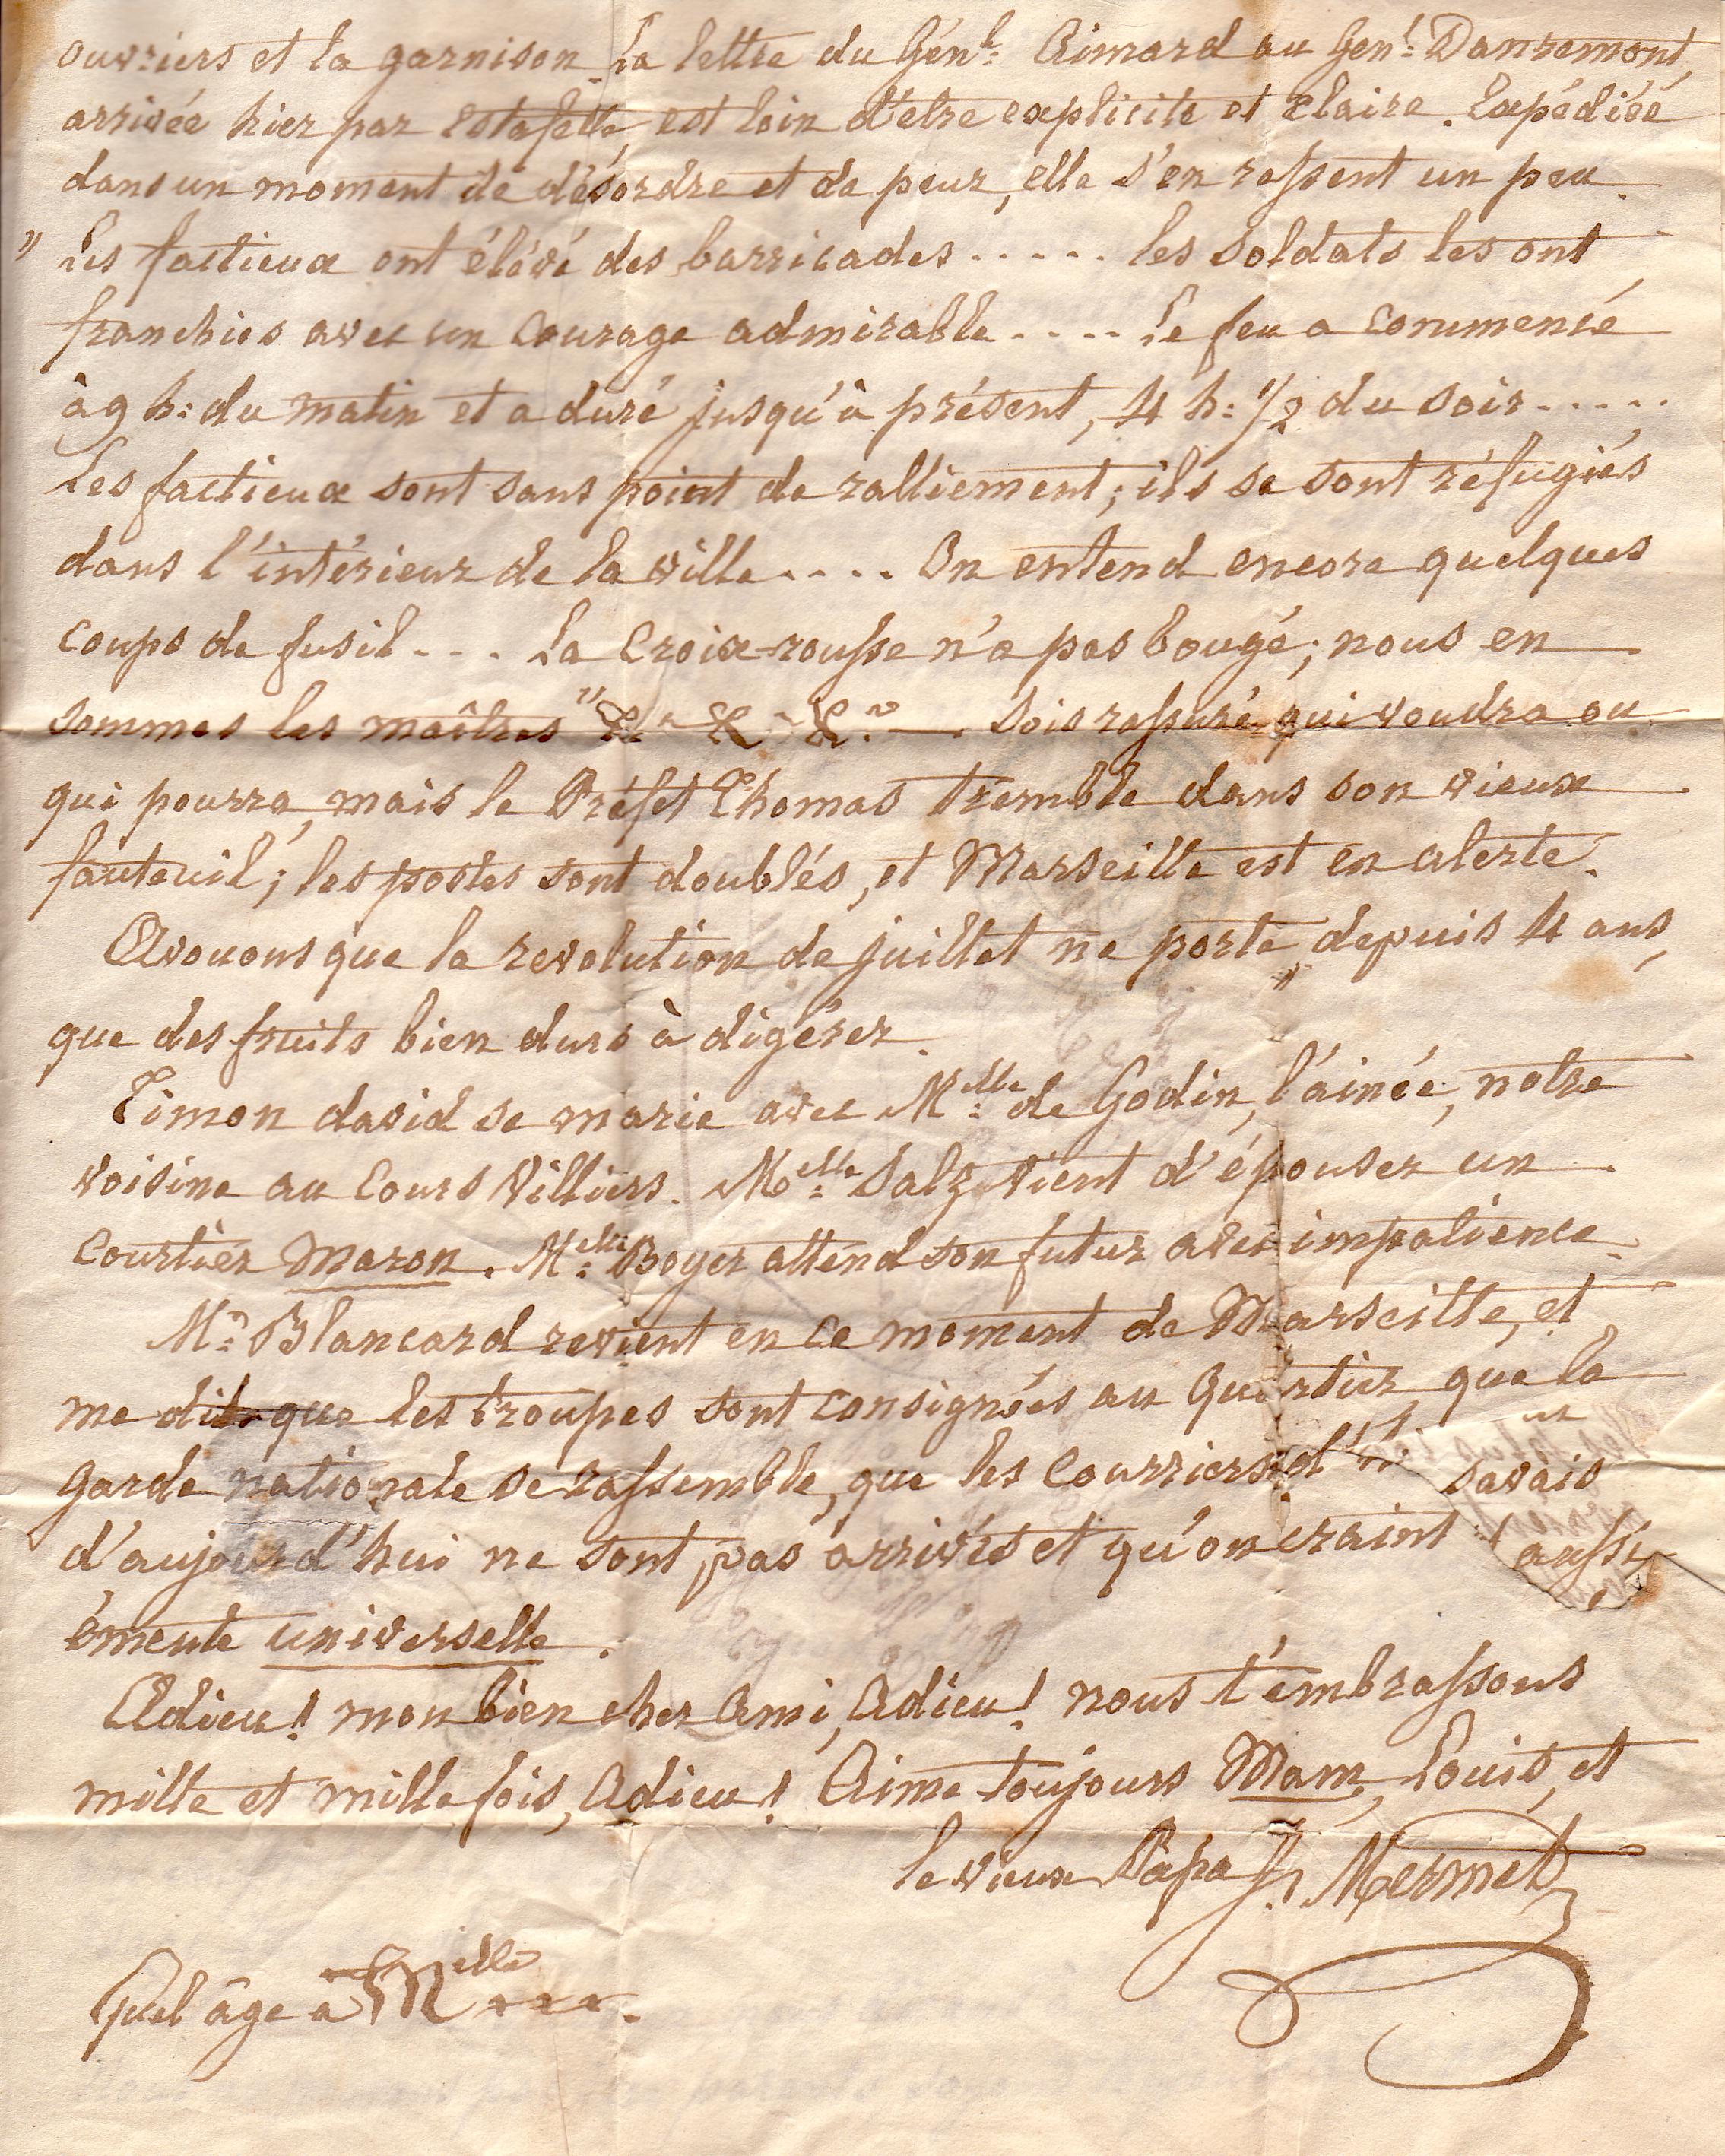 ouvriers et la garnison. La lettre du Génl: Aimard au Génl: Danremont,
arrivée hier par Estafette, est loin d'être explicite et claire. Expédiée
dans un moment de désordre et de peur, elle s'en ressent un peu.
" Les factieux ont élévé des barricades ..... les soldats les ont
franchies avec un courage admirable .... Le feu a commencé
à 9 h: du matin et a duré jusqu'à présent, 4 h: 1/2 du soir .....
Les factieux sont sans point de ralliement; ils se sont réfugiés
dans l'intérieur de la ville .... On entend encore quelques
coups de fusil ... La Croix-rousse n'a pas bougé; nous en
sommes les maîtres" & - & - &. Sois rassuré qui voudra ou
qui pourra, mais le Préfet Thomas tremble dans son vieux
fauteuil; les postes sont doublés, et Marseille est en alerte.
Avouons que la revolution de juillet ne porte, depuis 4 ans,
que des fruits bien durs à digérer.
Timon david se marie avec Melle: de Godin, l'ainée, notre
voisine au Cours Villiers. Melle: Salz vient d'épouser un
Courtier Maron. Melle: Boyer attend son futur avec impatience.
Mr: Blancard revient en ce moment de Marseille, et
me dit que les troupes sont consignées au Quartier, que la
garde nationale se rassemble, que les Courriers d'
savais
d'aujourd'hui ne sont pas arrivés et qu'on craint
aussi
émeute universelle.
Adieu! mon bien cher Ami, Adieu! nous t'embrassons
mille et mille fois, Adieu! Aime toujours Mam, Louis, et
le vieux Papa Jh Mermet
Quel âge a Melle xxx.